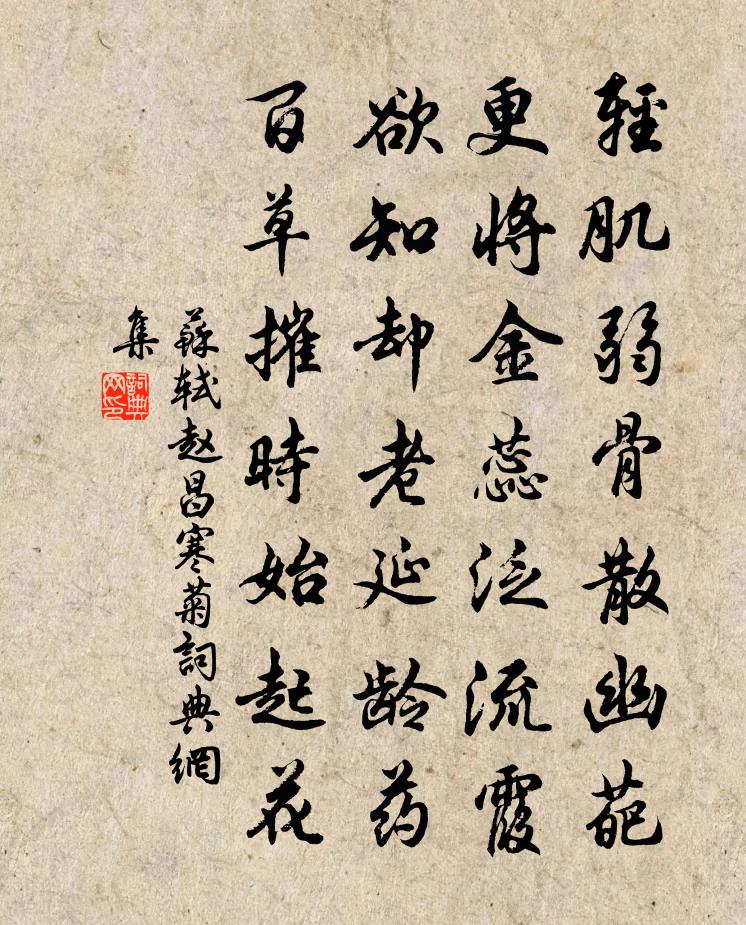 輕肌弱骨散幽葩
更將金蕊泛流霞
欲知却老延龄药
百草摧時始起花
蘇軾赵昌寒菊詞典網
集
詞典
网印